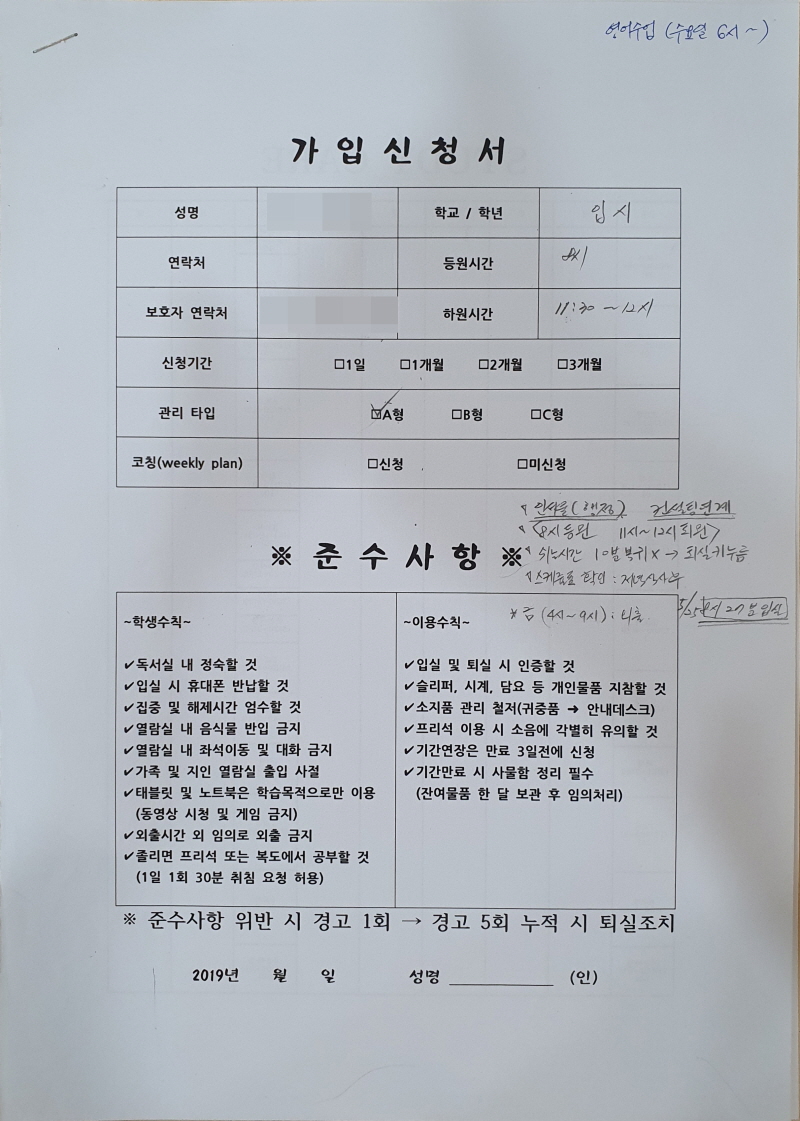 영어수업 (수요일 6시~)
가 입 신 청 서
성명 학교 / 학년 입시
연락처 등원시간 8시
보호자 연락처 하원시간 11:30 ~12시
신청기간 □1일 □1개월 □2개월 □3개월
관리 타입 ☑A형 □B형 □C형
코칭(weekly plan) □신청 □미신청
컨설팅연계
<8시 등원 11시~12시 퇴원>
※ 준 수 사 항 ※
쉬는시간 10분 복귀 X → 퇴실
스케쥴표 확인 :
~학생수칙~
✔독서실 내 정숙할 것
✔입실 시 휴대폰 반납할 것
✔집중 및 해제시간 엄수할 것
✔열람실 내 음식물 반입 금지
✔열람실 내 좌석이동 및 대화 금지
✔가족 및 지인 열람실 출입 사절
✔태블릿 및 노트북은 학습목적으로만 이용
(동영상 시청 및 게임 금지)
✔외출시간 외 임의로 외출 금지
✔졸리면 프리석 또는 복도에서 공부할 것
(1일 1회 30분 취침 요청 허용)
~이용수칙~
* 금 (4시~9시) :
✔입실 및 퇴실 시 인증할 것
✔슬리퍼, 시계, 담요 등 개인물품 지참할 것
✔소지품 관리 철저(귀중품 → 안내데스크)
✔프리석 이용 시 소음에 각별히 유의할 것
✔기간연장은 만료 3일전에 신청
✔기간만료 시 사물함 정리 필수
(잔여물품 한 달 보관 후 임의처리)
※ 준수사항 위반 시 경고 1회 → 경고 5회 누적 시 퇴실조치
2019년 월 일 성명 (인)